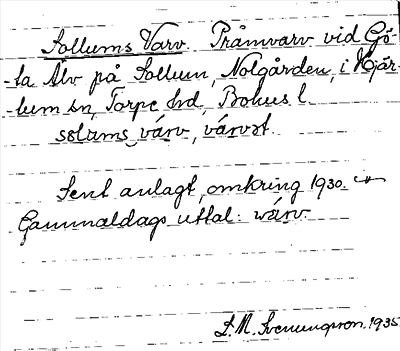 Sollums Varv. Pråmvarv vid Gö-
-ta Älv på Sollum, Nolgården, i Hjär-
-tum sn, Torpe hd, Bohus l.
solums värv, värvət.
Sent anlagt, omkring 1930.
Gammaldags uttal: wärv.
S. M. Svenungsson. 1935